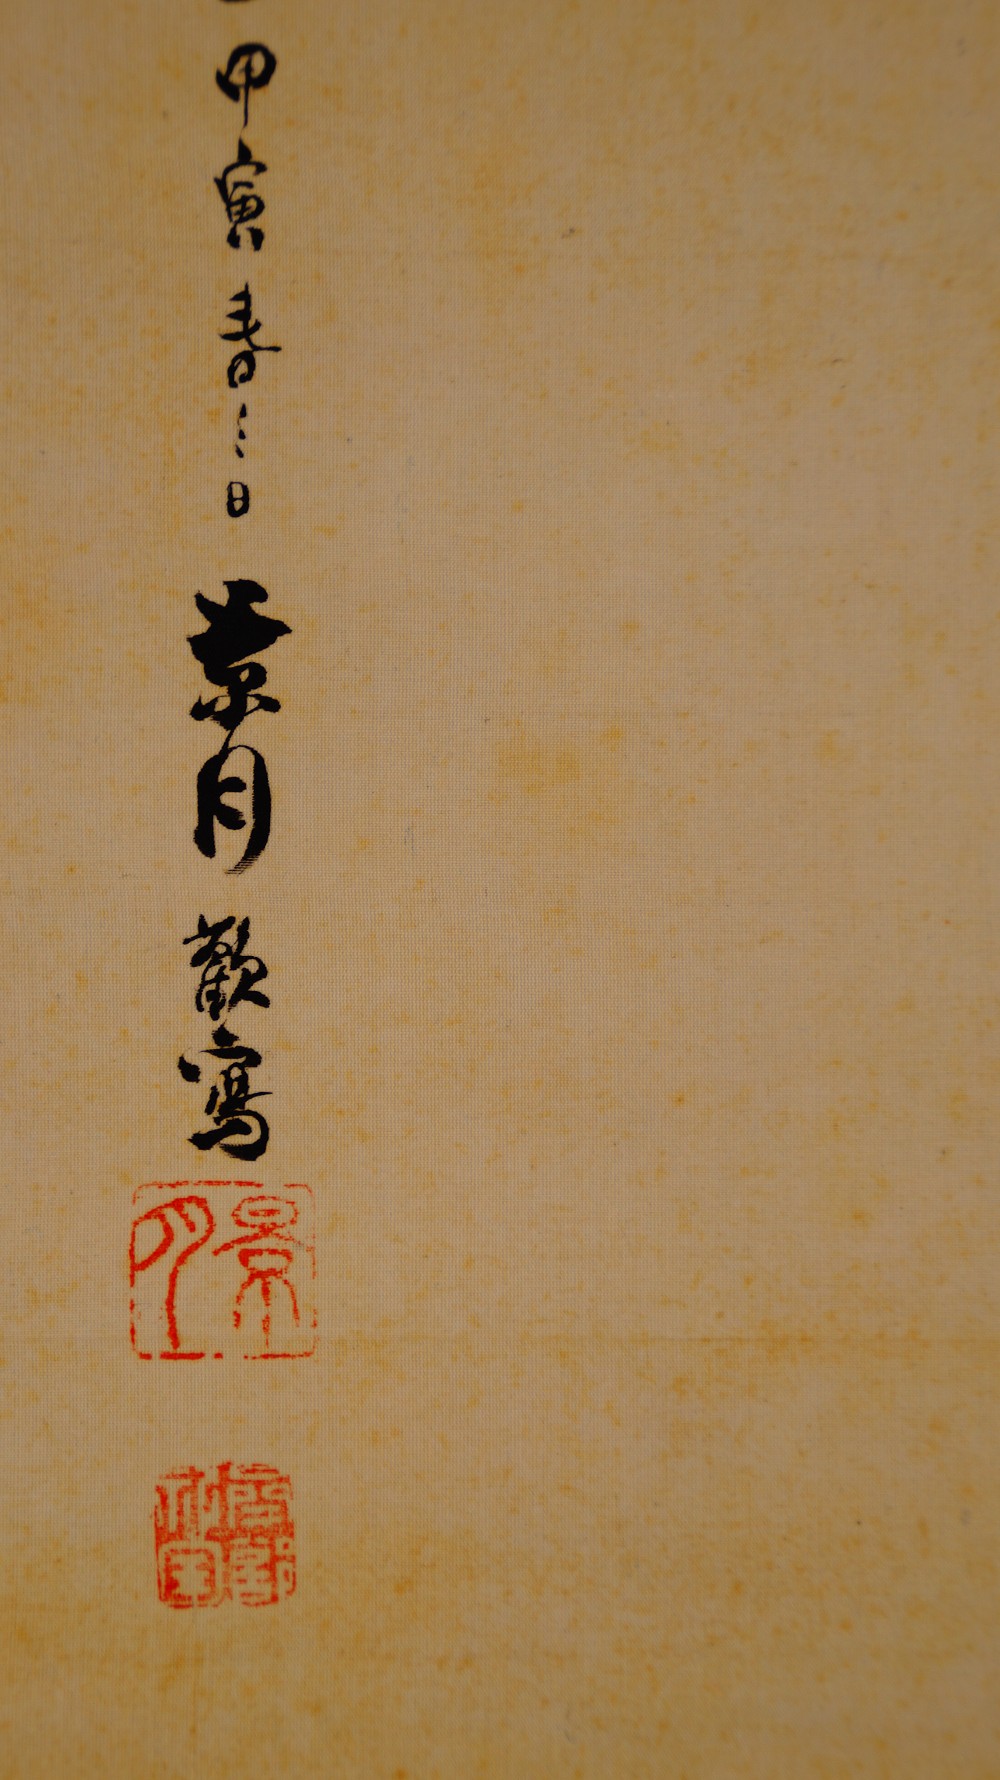 甲寅春三日景月歡寫
景月